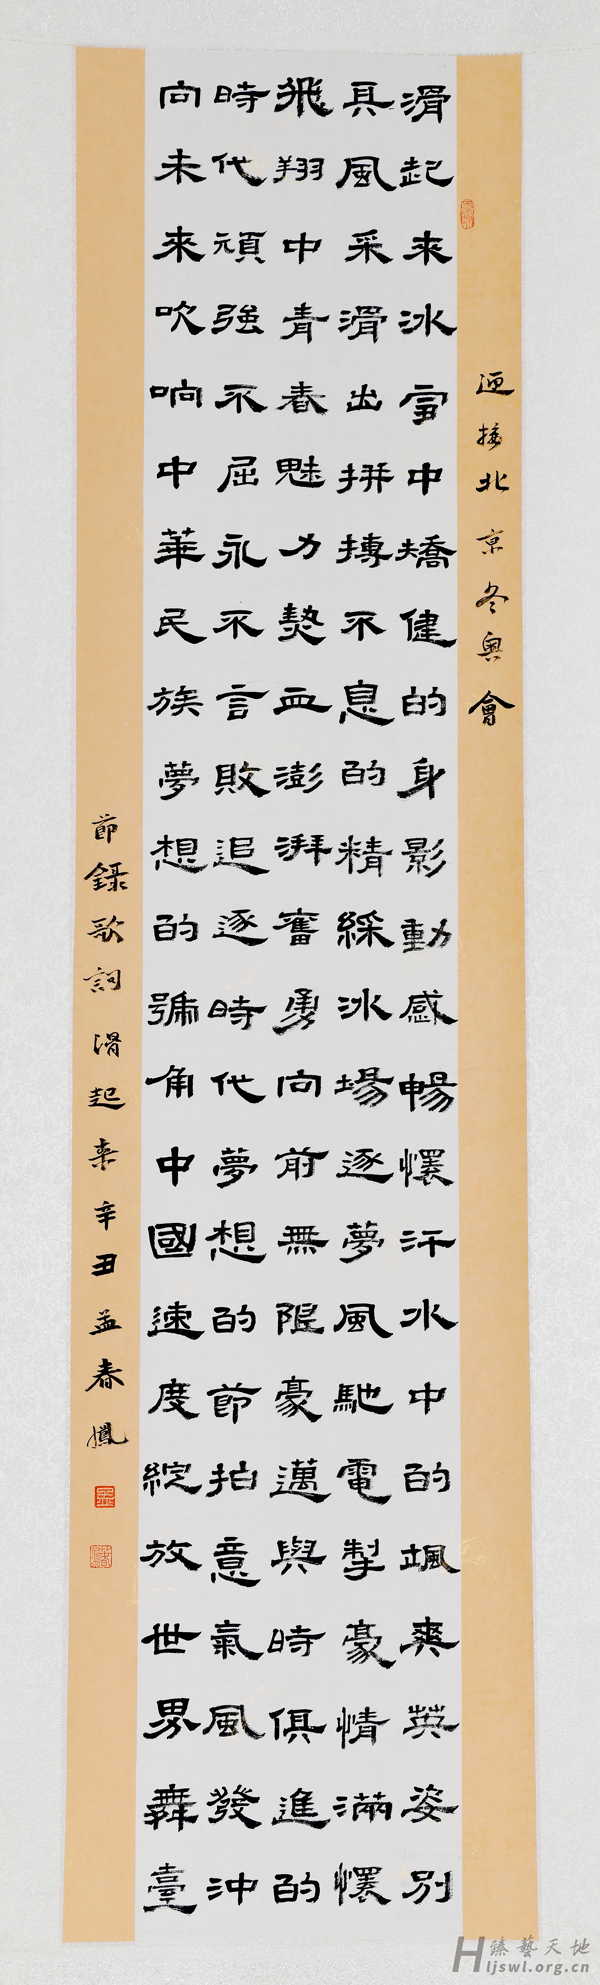 迎接北京冬奥會
滑起来冰雪中矯健的身影動感暢懷汗水中的颯爽英姿別
具風采滑出拼搏不息的精綵冰場逐夢風馳電掣豪情滿懷
飛翔中青春魅力熱血澎湃奮勇向前無限豪邁與時俱進的
時代頑強不屈永不言敗追逐時代夢想的節拍意氣風發沖
向未来吹响中華民族夢想的號角中國速度綻放世界舞臺
節錄歌詞滑起来辛丑孟春鳳
臻藝天地
Hljswl.org.cn